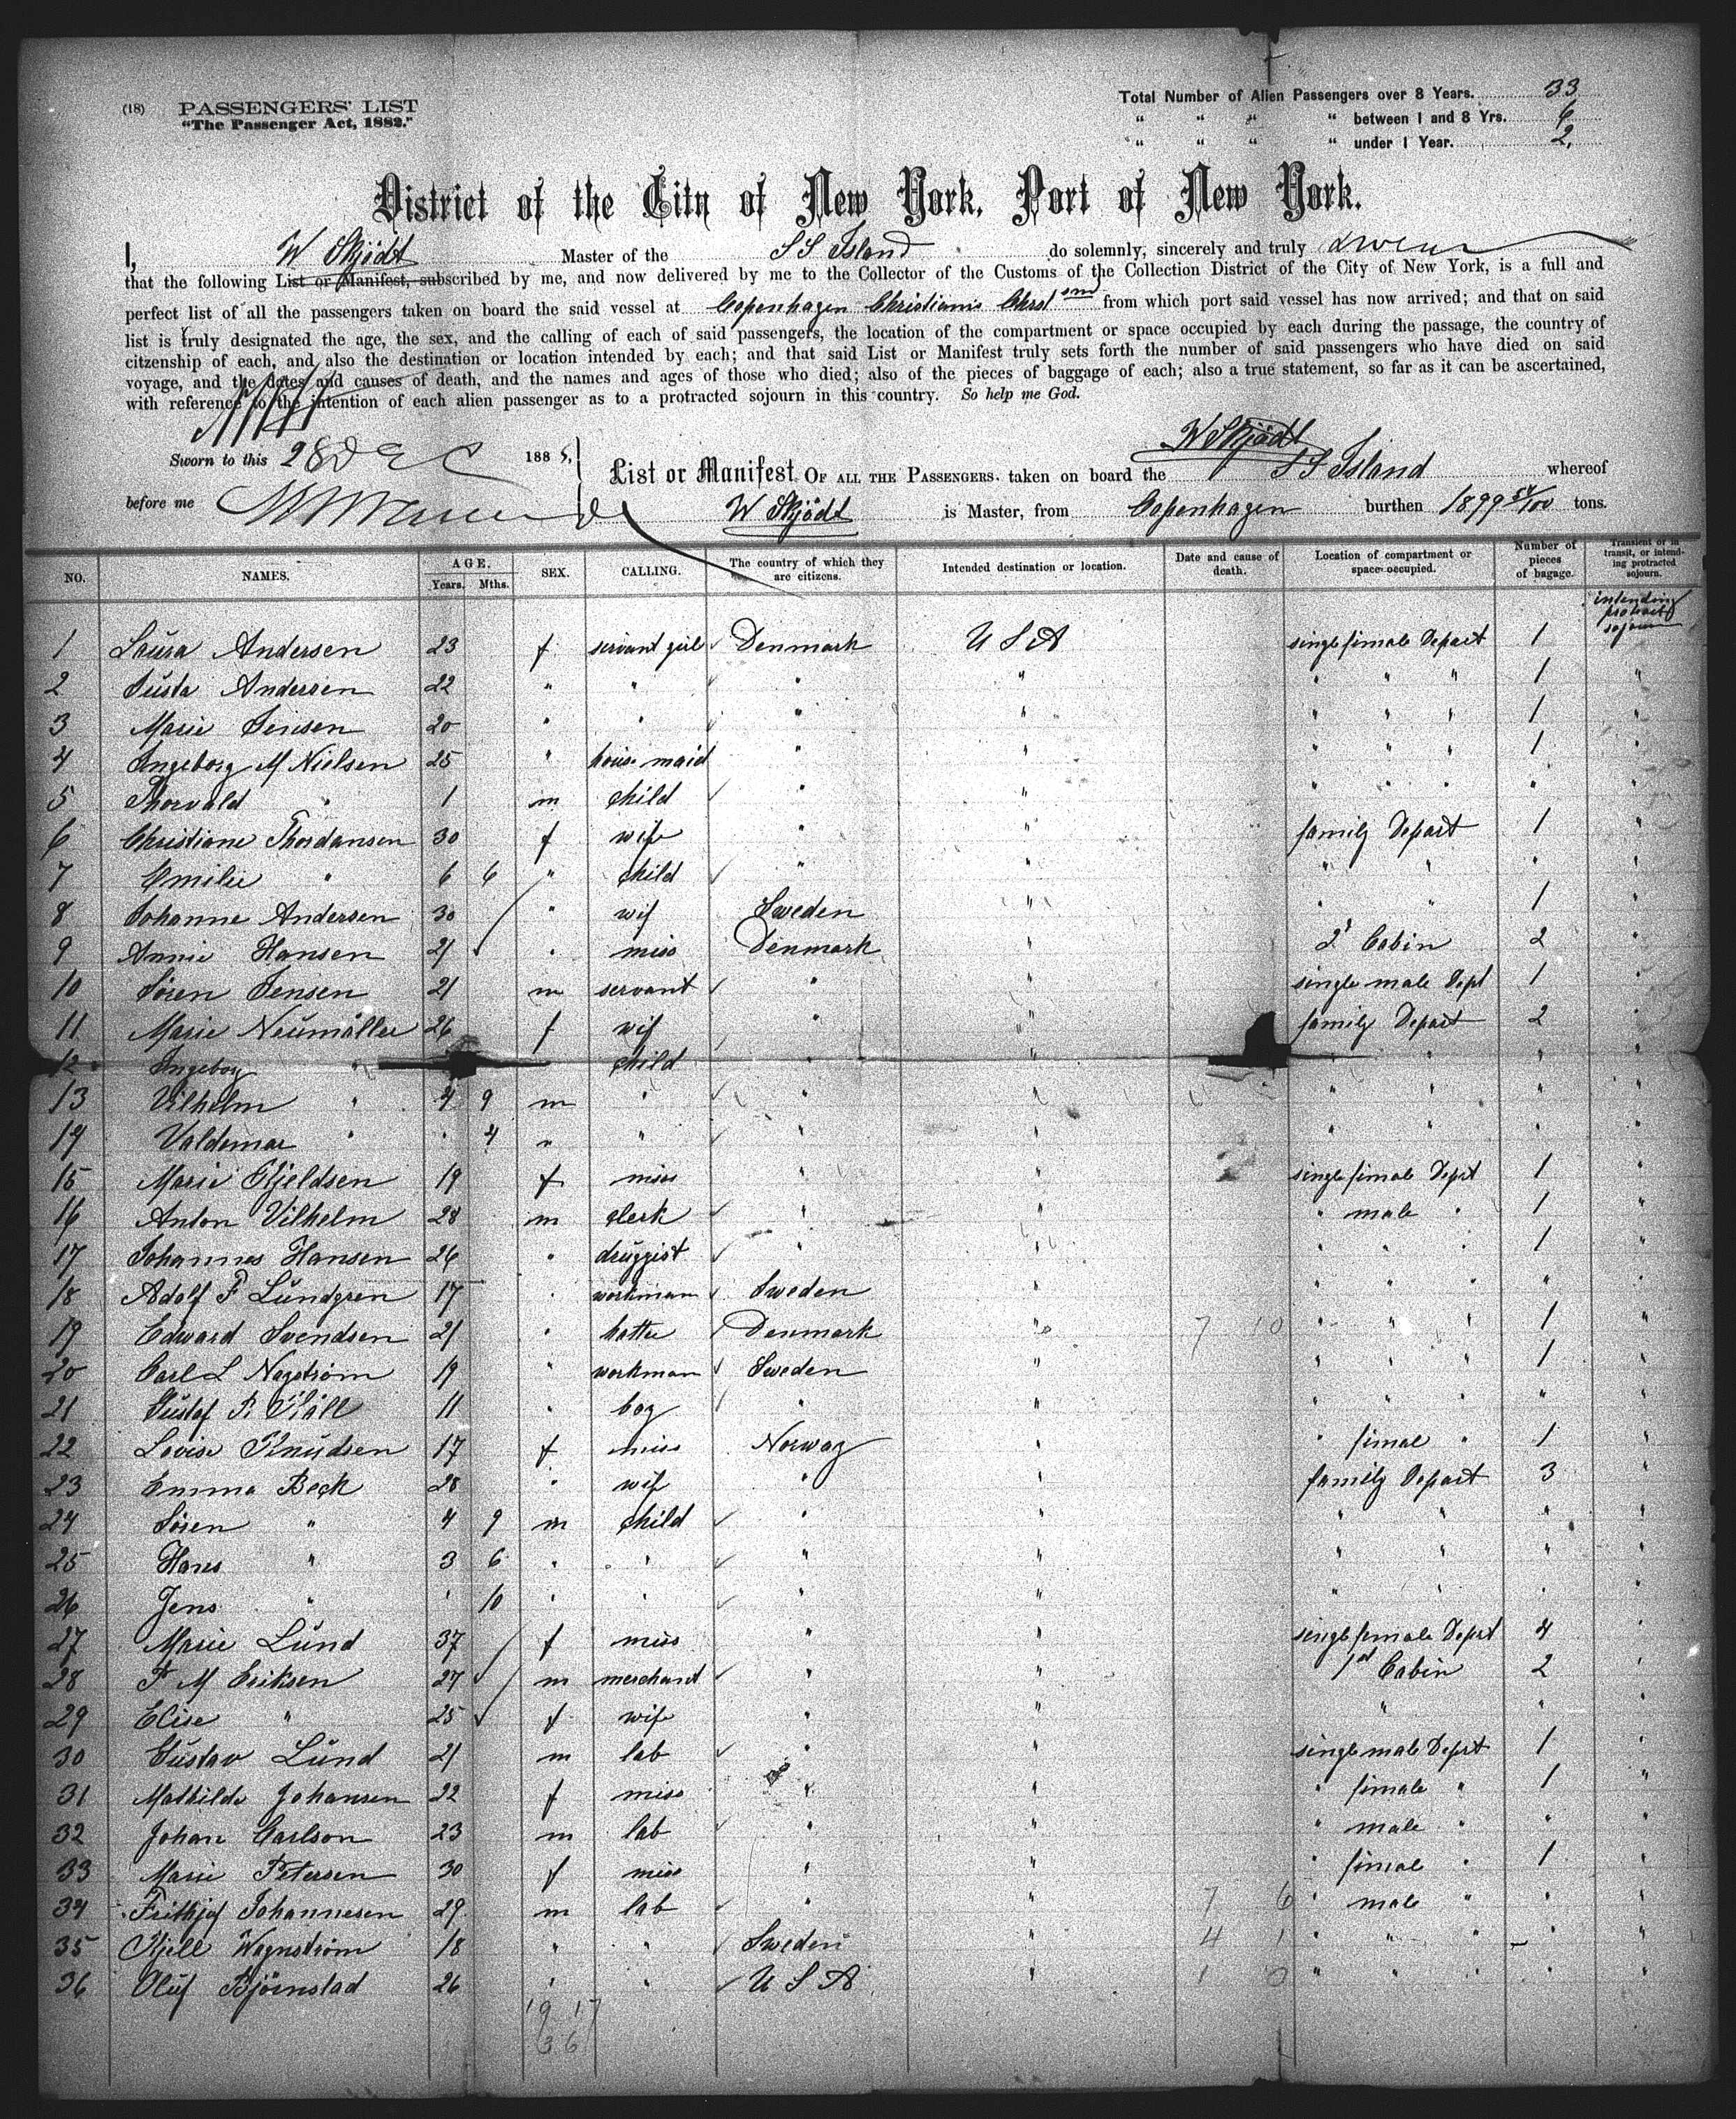 (18) PASSENGERS' LIST
"The Passenger Act, 1882."
Total Number of Alien Passengers over 8 Years. 33
" " " " between 1 and 8 Yrs. 6
" " " " under 1 Year. 2.
District of the City of New York, Port of New York.
I, W Skjödt Master of the S S Island do solemnly, sincerely and truly swear
that the following List or Manifest, subscribed by me, and now delivered by me to the Collector of the Customs of the Collection District of the City of New York, is a full and
perfect list of all the passengers taken on board the said vessel at Copenhagen Christiania Christ sand from which port said vessel has now arrived; and that on said
list is truly designated the age, the sex, and the calling of each of said passengers, the location of the compartment or space occupied by each during the passage, the country of
citzenship of each, and also the destination or location intended by each; and that said List or Manifest truly sets forth the number of said passengers who have died on said
voyage, and the dates and causes of death, and the names and ages of those who died; also of the pieces of baggage of each; also a true statement, so far as it can be ascertained,
with reference to the intention of each alien passenger as to a protracted sojourn in this country. So help me God.
W Skjödt
Sworn to this 28 Dec 188
List or Manifest OF ALL THE PASSENGERS taken on board the S S Island whereof
before me
W Skjödt is Master, from Copenhagen burthen 1899 54/100 tons.
NO. NAMES. AGE. Years. Mths. SEX. CALLING. The country of which they are citizens. Intended destination or location. Date and cause of death. Location of compartment or space occupied. Number of pieces of bagage. Transient or in transit, or intending protracted sojourn.
intending protracted sojourn
1 Laura Andersen 23 f servant girl Denmark U S A single female Depart 1
2 Justa Andersen 22 " " " " " " " 1 "
3 Marie Jensen 20 " " " " " " " 1 "
4 Ingeborg M Nielsen 25 " house maid " " " " " 1 "
5 Thorvald " 1 m child " " " " " " "
6 Christiane Thordansen 30 f wife " " family Depart 1 "
7 Emilie " 6 6 " child " " " " " "
8 Johanne Andersen 30 " wif Sweden " " " 1 "
9 Annie Hansen 21 " miss Denmark " 2d Cabin 2 "
10 Sören Jensen 21 m servant " " single male Dept 1 "
11 Marie Neumöller 26 f wif " " family Depart 2 "
12 Ingeborg " " child " " " " " "
13 Vilhelm " 4 9 m " " " " " " "
14 Valdemar " " 4 " " " " " " " "
15 Marie Kjeldsen 19 f miss " " single female Deprt 1 "
16 Anton Vilhelm 28 m clerk " " " male " 1 "
17 Johannes Hansen 26 " druggist " " " " " 1 "
18 Adolf F Lundgren 17 " workman Sweden " " " " " "
19 Edward Svendsen 21 " hatter Denmark " 7 10 " " " 1 "
20 Carl L Nagström 19 " workman Sweden " " " " 1 "
21 Gustaf R 11 " boy " " " " " " "
22 Lovise Knudsen 17 f miss Norway " " fimal " 1 "
23 Emma Beck 28 " wif " " family Depart 3 "
24 Sören " 4 9 m child " " " " " "
25 Hans " 3 6 " " " " " " " "
26 Jens " " 10 " " " " " " " "
27 Marie Lund 37 f miss " " single female Deprt 4 "
28 P M Eriksen 27 m merchant " " 1st Cabin 2 "
29 Elise " 25 f wife " " " " "
30 Gustav Lund 21 m lab " " single male Deprt 1 "
31 Mathilde Johansen 22 f miss " " " fimale " 1 "
32 Johan Carlson 23 m lab " " " male " " "
33 Marie Petersen 30 f miss " " " fimal " 1 "
34 Frithjof Johannesen 29 m lab " " 7 6 " male " " "
35 Kjell Wagnström 18 " " Sweden " 4 1 " " " " "
36 Oluf Björnstad 26 " " U S A " 1 0 " " " " "
19 17
36